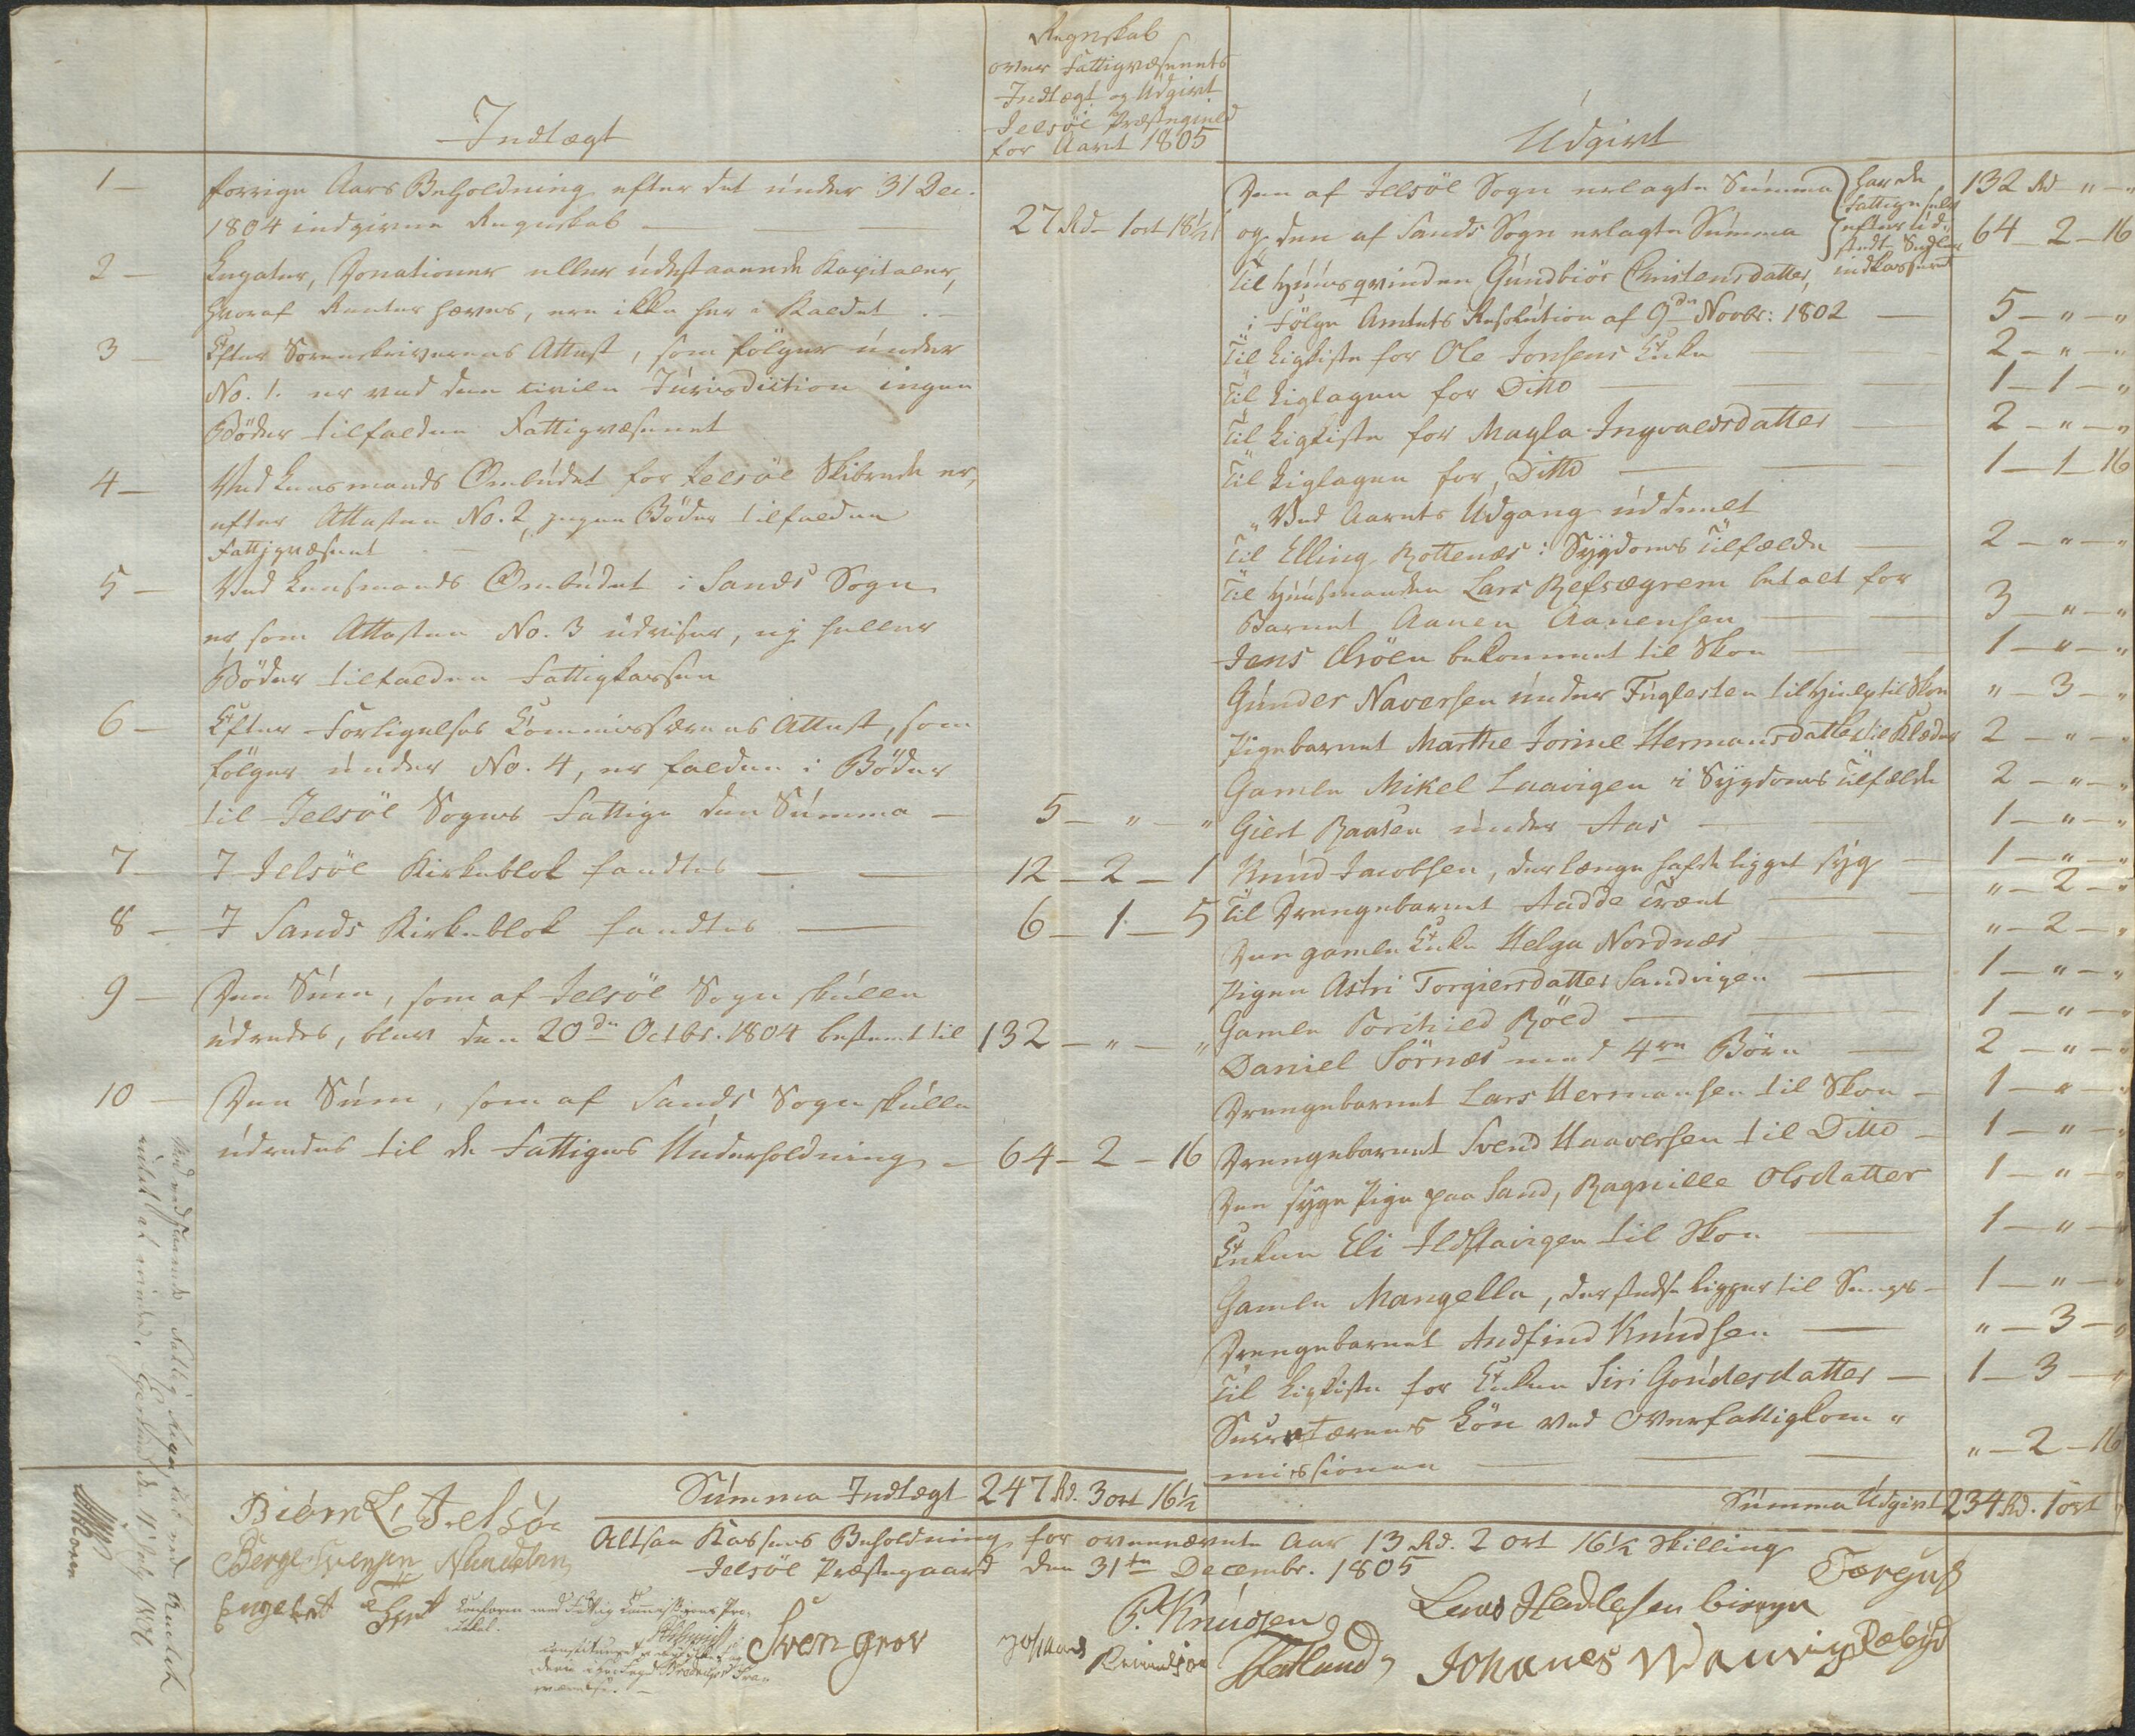 Regnskab
over Fattigvæsenets
Indtægt og Udgivt
Jelsöe Præstegield
for Aaret 1805
Indtægt
1 — forrige Aars Beholdning efter det under 31 Dec.
1804 indgivne Regnskab — 27 Rd — 1 ort 18 1/2 s
2 — Legater, Donationer eller udestaaende Kapitaler,
hvoraf Renter hæves, ere ikke her i Kaldet . —
3 — Efter Sorenskriverens Attest, som fölger under
No. 1. er ved den civile Jurisdiction ingen
Böder tilfalden Fattigvæsenet
4 — Ved Lensmands Ombudet for Jelsöe Skibrede er,
efter Attesten No. 2, ingen Böder tilfalden
Fattigvæsenet
5 — Ved Lensmands Ombudet i Sands Sogn
er, som Attesten No. 3 udviser, ej heller
Böder tilfalden Fattigkassen
6 — Efter Forligelses Commissærenes Attest, som
fölger under No. 4, er falden i Böder
til Jelsöe Sogns Fattige den Summa — 5 — " — "
7 — I Jelsöe Kirkeblok fandtes — 12 — 2 — 1
8 — I Sands Kirkeblok fandtes — 6 — 1 — 5
9 — Den Sum, som af Jelsöe Sogn skulle
udredes, blev den 20de Octbr. 1804 bestemt til 132 — " — "
10 — Den Sum, som af Sands Sogn skulle
udredes til de Fattiges Underholdning — 64 — 2 — 16
Summa Indtægt 247 Rd. 3 ort 16 1/2
Udgivt
Den af Jelsöe Sogn erlagte Summa 132 Rd — " — "
og den af Sands Sogn erlagte Summa 64 — 2 — 16
har de
Fattige selv
efter ud-
stedt Sedler
indkasseret
Til Huusqvinden Gundbiör Christensdatter,
i Fölge Amtets Resolution af 9de Novbr: 1802 — 5 — " — "
Til Ligkiste for Ole Jonsens Enke 2 — " — "
Til Liglagen for Ditto — 1 — 1 — "
Til Ligkiste for Magla Ingvaldsdatter — 2 — " — "
Til Liglagen for Ditto — 1 — 1 — 16
" Ved Aarets Udgang uddeelt
Til Elling Rottenæs i Sygdoms Tilfælde — 2 — " — "
Til Huusmanden Lars Refsægrem betalt for
Barnet Aanen Aanensen — 3 — " — "
Jens Øsöen bekommet til Skoe — 1 — " — "
Gunder Naversen under Fuglesten til Hielp til Skoe " — 3 — "
Pigebarnet Marthe Jorine Hermansdatter til Klæder 2 — " — "
Gamle Mikel Laavigen i Sygdoms Tilfælde 2 — " — "
Giert Raasen under Aas — 1 — " — "
Knud Jacobsen, der længe hafde ligget syg — 1 — " — "
Til Drengebarnet Aadde Træet — " — 2 — "
Den gamle Enke Helga Nordnæs — " — 2 — "
Pigen Astri Torgiersdatter Sandvigen — 1 — " — "
Gamle Torchild Röed — 1 — " — "
Daniel Sörnæs med 4re Börn — 2 — " — "
Drengebarnet Lars Hermansen til Skoe — 1 — " — "
Drengebarnet Svend Haaversen til Ditto — 1 — " — "
Den syge Pige paa Sand, Ragnille Olsdatter 1 — " — "
Enken Eli Ildstavigen til Skoe — 1 — " — "
Gamle Mangella, der stedse ligger til Sengs — 1 — " — "
Drengebarnet Andfind Knudsen — " — 3 — "
Til Ligkiste for Enken Siri Goudesdatter — 1 — 3 — "
Secretærens Lön ved Overfattigkom "
missionen — " — 2 — 16
Summa Udgivt 234 Rd. 1 ort
Altsaa Kassens Beholdning for ovennævnte Aar 13 Rd. 2 ort 16 1/2 Skilling
Jelsöe Præstegaard den 31te Decembr. 1805
Biörn L Jelsöe
Berge Svensen
Engebret
Sven Grov
P. Knudsen
Johanes